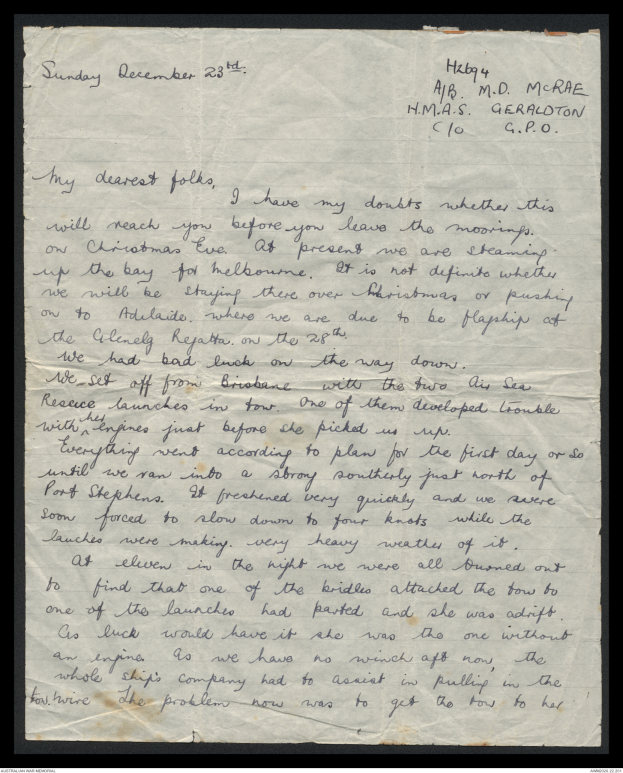 Sunday December 23rd.
H2694
A/B. M.D. McRAE
H.M.A.S. GERALDTON
C/o G.P.O.
My dearest folks,
I have my doubts whether this
will reach you before you leave the moorings.
on Christmas Eve. At present we are steaming
up the bay for Melbourne. It is not definite whether
we will be staying there over Christmas or pushing
on to Adelaide. where we are due to be flagship at
the Glenelg Regatta. on the 28th.
We had bad luck on the way down.
We set off from Brisbane with the two Air Sea
Rescue launches in tow. One of them developed trouble
with her engines just before she picked us up.
Everything went according to plan for the first day or so
until we ran into a strong southerly just north of
Port Stephens. It freshened very quickly and we were
soon forced to slow down to four knots while the
lauches were making. very heavy weather of it.
At eleven in the night we were all turned out
to find that one of the bridles attached the tow to
one of the launches had parted and she was adrift.
As luck would have it she was the one without
an engine. As we have no winch aft now, the
whole ship's company had to assist in pulling in the
tow. wire The problem now was to get the tow to her
AUSTRALIAN WAR MEMORIAL